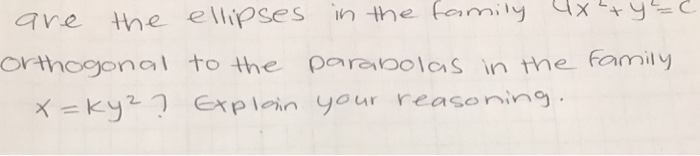 are the ellipses in the family 4x²+y²=C
orthogonal to the parabolas in the family
x=ky²? Explain your reasoning.